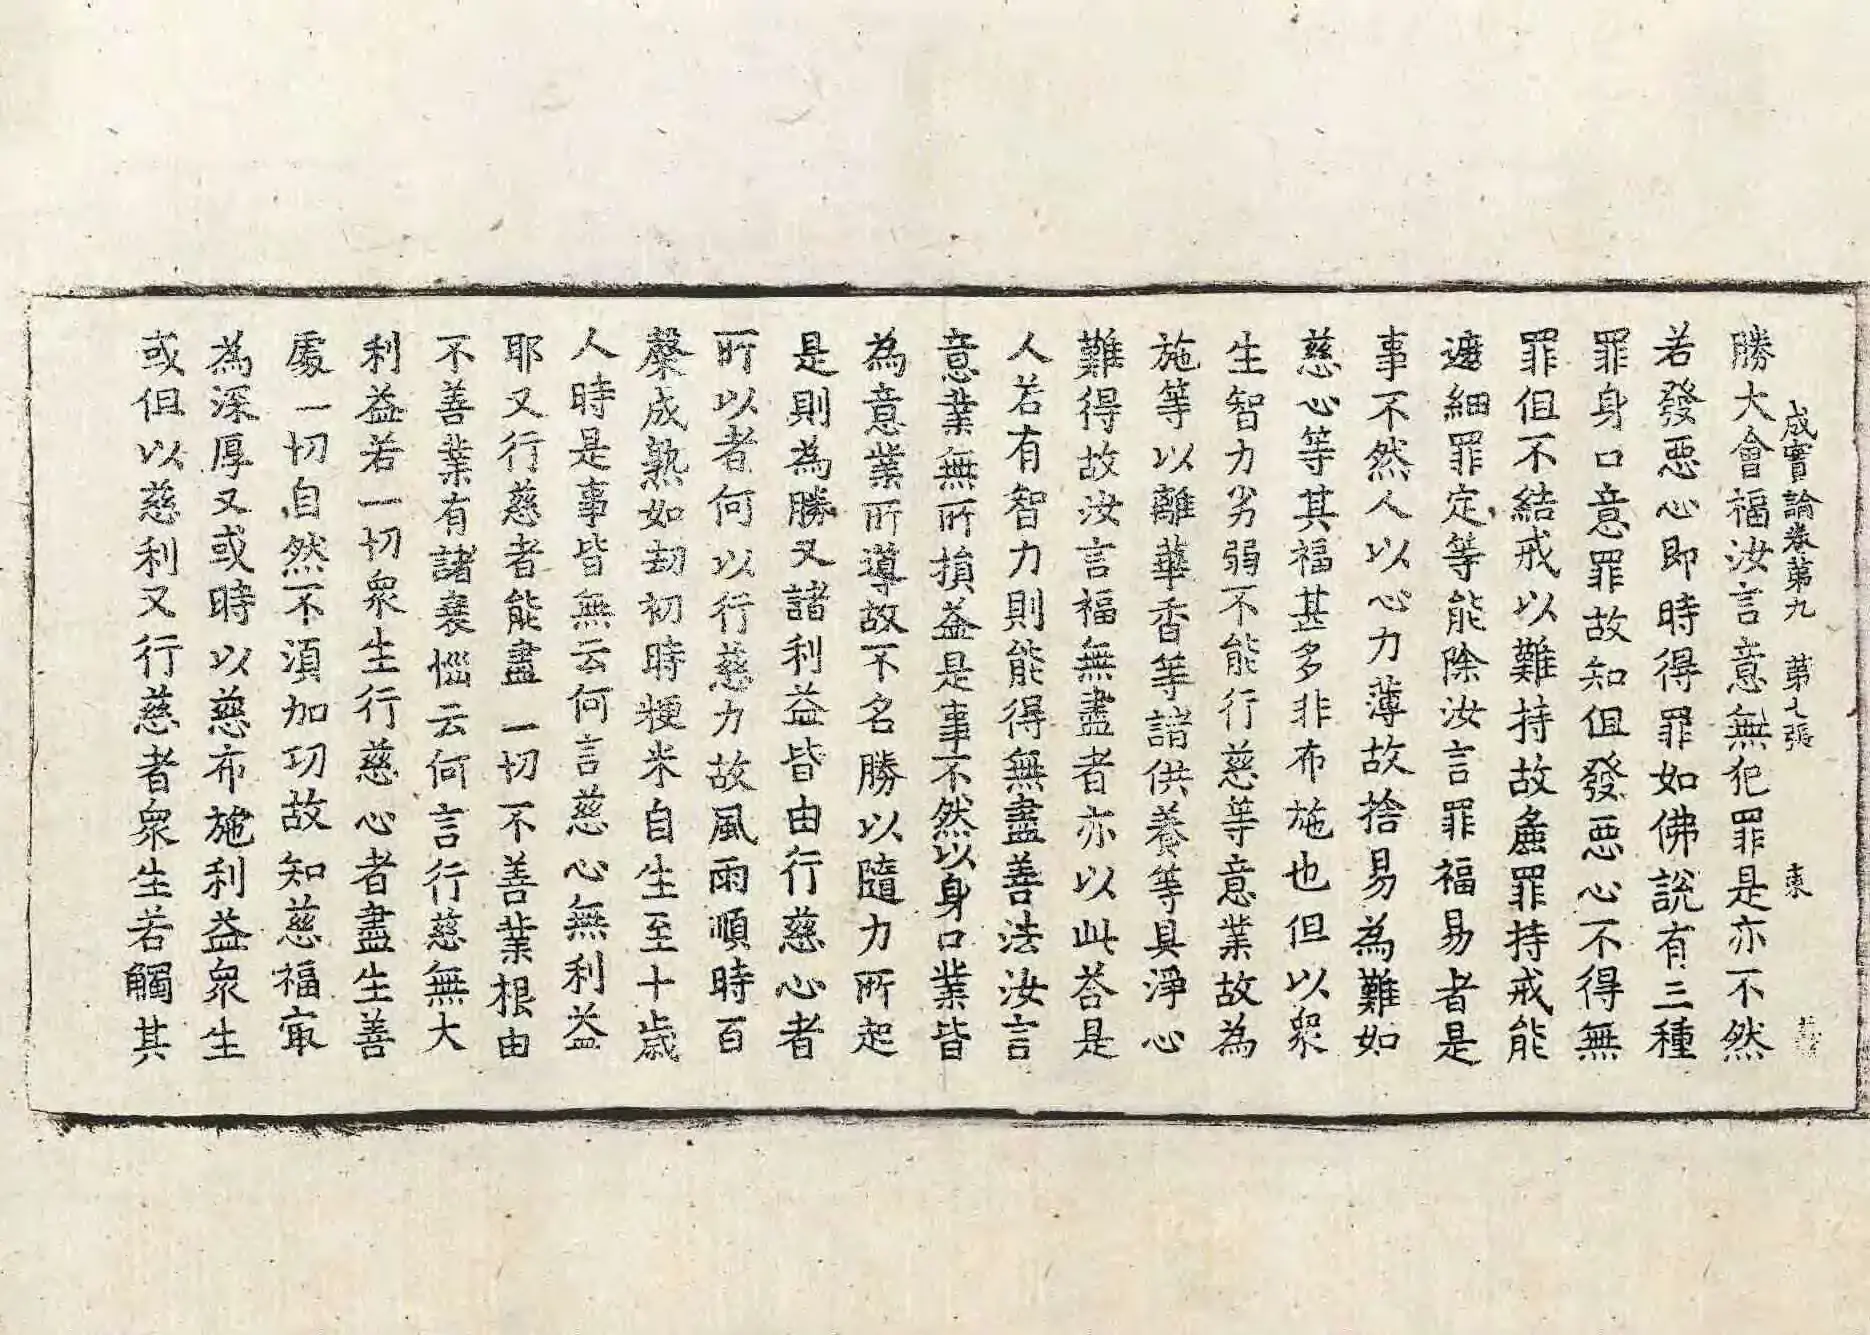 成實論卷第九　第七張　東
勝大會福汝言意無犯罪是亦不然
若發惡心即時得罪如佛說有三種
罪身口意罪故知但發惡心不得無
罪但不結戒以難持故麁罪持戒能
遮細罪定等能除汝言罪福易者是
事不然人以心力薄故捨易為難如
慈心等其福甚多非布施也但以衆
生智力劣弱不能行慈等意業故為
施等以離華香等諸供養等具淨心
難得故汝言福無盡者亦以此荅是
人若有智力則能得無盡善法汝言
意業無所損益是事不然以身口業皆
為意業所導故不名勝以隨力所起
是則為勝又諸利益皆由行慈心者
所以者何以行慈力故風雨順時百
糓成熟如劫初時粳米自生至十歲
人時是事皆無云何言慈心無利益
耶又行慈者能盡一切不善業根由
不善業有諸衰惱云何言行慈無大
利益若一切衆生行慈心者盡生善
處一切自然不湏加功故知慈福㝡
為深厚又或時以慈布施利益衆生
或但以慈利又行慈者衆生若觸其